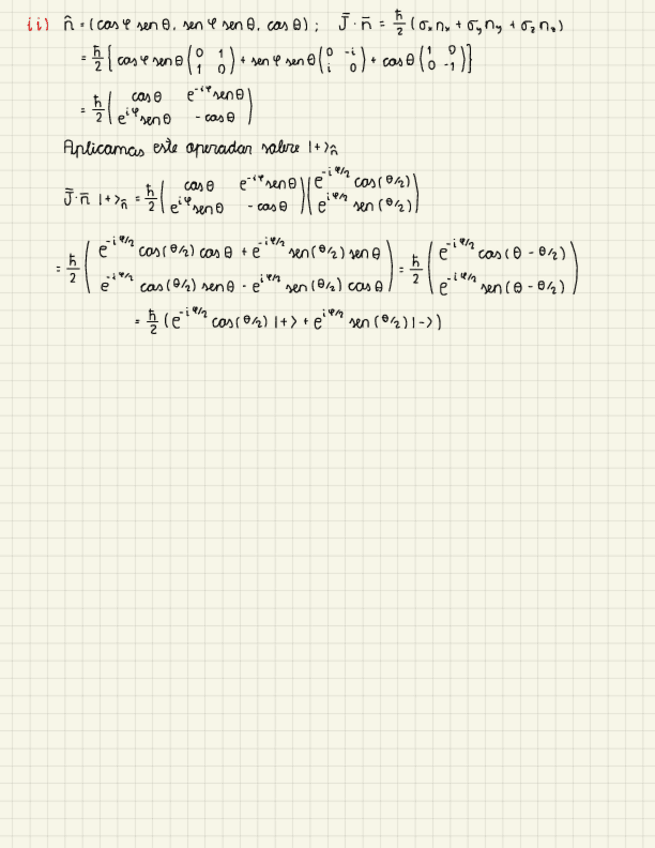 ii) n̂ = (cos φ sen θ, sen φ sen θ, cos θ) ; J̄ · n̄ = ħ/2 (σₓ nₓ + σᵧ nᵧ + σ_z n_z)
= ħ/2 [ cos φ sen θ (0 1 ; 1 0) + sen φ sen θ (0 -i ; i 0) + cos θ (1 0 ; 0 -1) ]
= ħ/2 ( cos θ e^{-iφ} sen θ ; e^{iφ} sen θ - cos θ )
Aplicamos este operador sobre |+>_n̂
J̄ · n̄ |+>_n̂ = ħ/2 ( cos θ e^{-iφ} sen θ ; e^{iφ} sen θ - cos θ ) ( e^{-iφ/2} cos (θ/2) ; e^{iφ/2} sen (θ/2) )
= ħ/2 ( e^{-iφ/2} cos(θ/2) cos θ + e^{-iφ/2} sen(θ/2) sen θ ; e^{-iφ/2} cos(θ/2) sen θ - e^{iφ/2} sen (θ/2) cos θ ) = ħ/2 ( e^{-iφ/2} cos (θ - θ/2) ; e^{-iφ/2} sen (θ - θ/2) )
= ħ/2 ( e^{-iφ/2} cos (θ/2) |+> + e^{iφ/2} sen (θ/2) |-> )